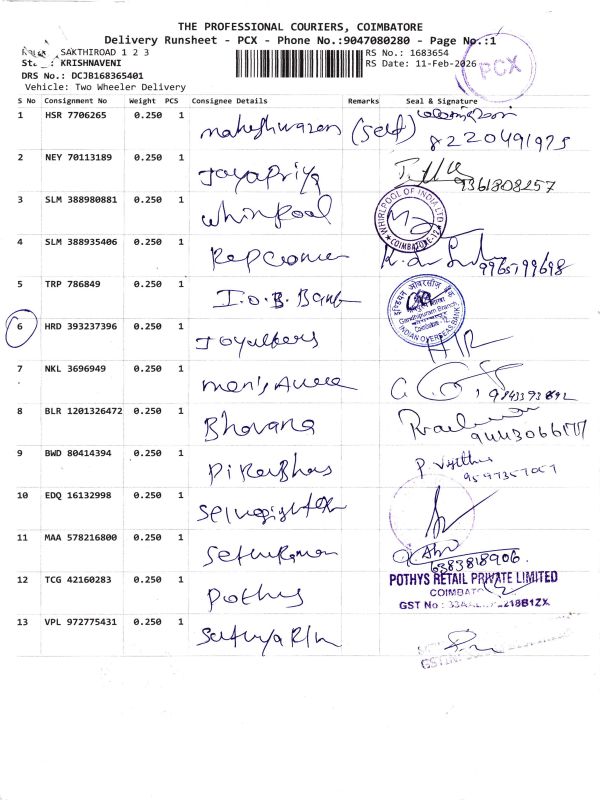 THE PROFESSIONAL COURIERS, COIMBATORE
Delivery Runsheet - PCX - Phone No.:9047080280 - Page No.:1
SAKTHIROAD 1 2 3
RS No.: 1683654
: KRISHNAVENI
RS Date: 11-Feb-2026
DRS No.: DCJB168365401
PCX
Vehicle: Two Wheeler Delivery
S No Consignment No Weight PCS Consignee Details Remarks Seal & Signature
1 HSR 7706265 0.250 1 maheshwaran (self) 8220491975
2 NEY 70113189 0.250 1 Jayapriya 9361808257
3 SLM 388980881 0.250 1 whirlpool
WHIRLPOOL OF INDIA LTD COIMBATORE-12
4 SLM 388935406 0.250 1 Repco 9965799698
5 TRP 786849 0.250 1 I.O.B. Bank
Gandhipuram Branch, Coimbatore-12 INDIAN OVERSEAS BANK
6 HRD 393237396 0.250 1 Joyalukkas
7 NKL 3696949 0.250 1 men's Avenue
8 BLR 1201326472 0.250 1 Bhavana
9 BWD 80414394 0.250 1
10 EDQ 16132998 0.250 1
11 MAA 578216800 0.250 1 Sethuraman 6383818906
12 TCG 42160283 0.250 1 Pothys
POTHYS RETAIL PRIVATE LIMITED
COIMBATO
GST No :
13 VPL 972775431 0.250 1